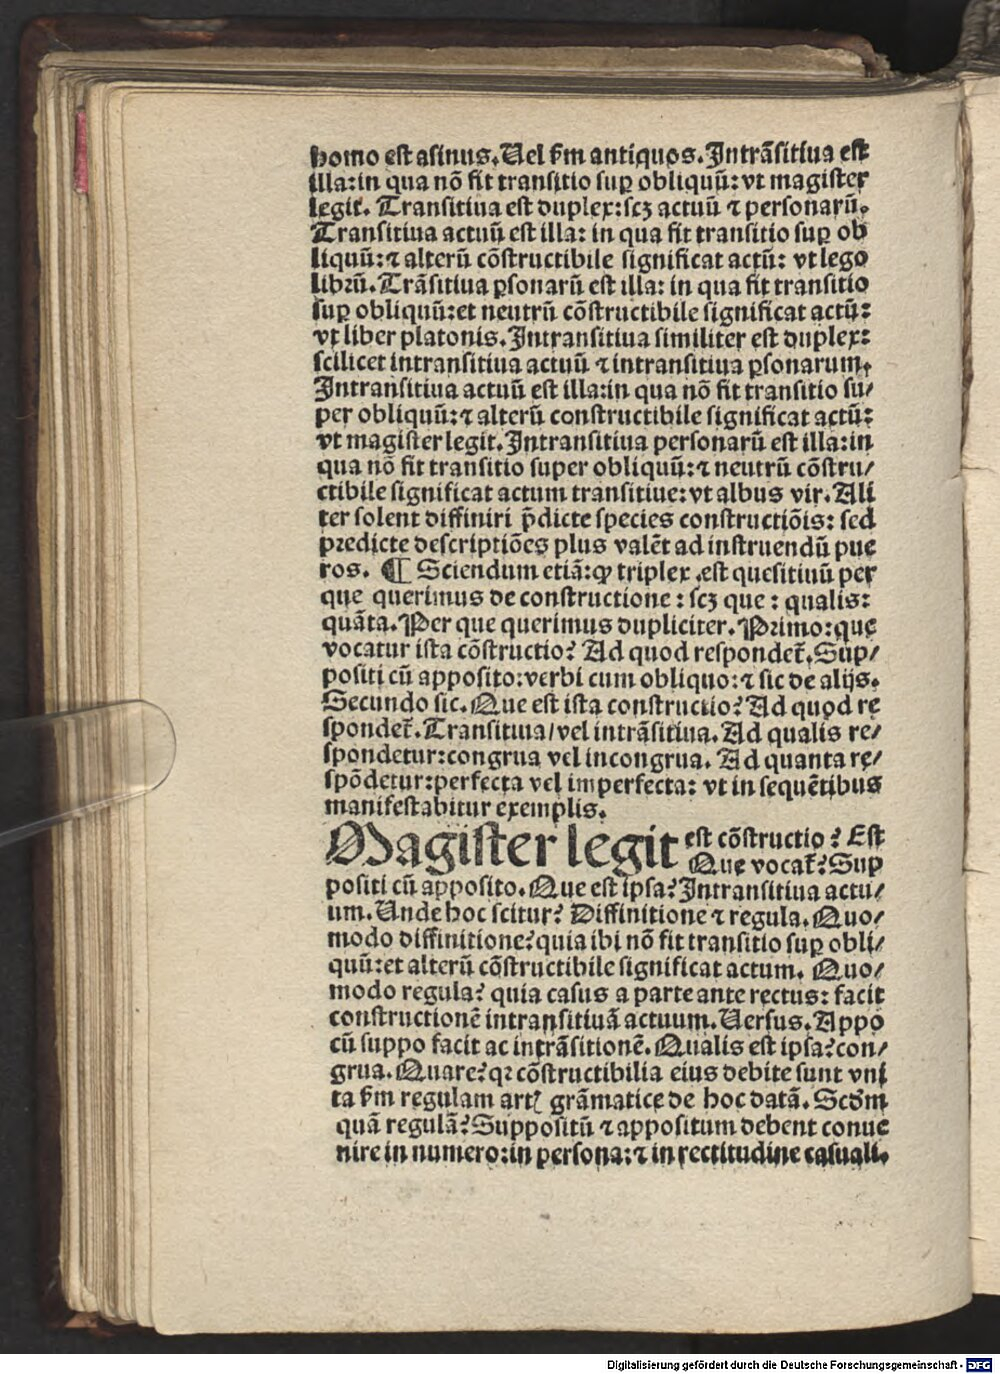 homo est asinus. Uel ẜm antiquos. Intrāsitiua est
illa: in qua nō fit transitio suꝑ obliquū: vt magister
legit. Transitiua est duplex: scꝫ actuū ⁊ personarū.
Transitiua actuū est illa: in qua fit transitio suꝑ ob
liquū: ⁊ alterū cōstructibile significat actū: vt lego
librū. Trāsitiua ꝑsonarū est illa: in qua fit transitio
suꝑ obliquū: et neutrū cōstructibile significat actū:
vt liber platonis. Intransitiua similiter est duplex:
scilicet intransitiua actuū ⁊ intransitiua ꝑsonarum.
Intransitiua actuū est illa: in qua nō fit transitio su/
per obliquū: ⁊ alterū constructibile significat actū:
vt magister legit. Intransitiua personarū est illa: in
qua nō fit transitio super obliquū: ⁊ neutrū cōstru/
ctibile significat actum transitiue: vt albus vir. Ali
ter solent diffiniri p̄dicte species constructiōis: sed
predicte descriptiōes plus valēt ad instruendū pue
ros. ¶ Sciendum etiā: ꝙ triplex est quesitiuū per
que querimus de constructione: scꝫ que: qualis:
quāta. Per que querimus dupliciter. Primo: que
vocatur ista cōstructio? Ad quod respondet̄. Sup/
positi cū apposito: verbi cum obliquo: ⁊ sic de alijs.
Secundo sic. Que est ista constructio? Ad quod re
spondet̄. Transitiua/ vel intrāsitiua. Ad qualis re/
spondetur: congrua vel incongrua. Ad quanta re/
spōdetur: perfecta vel imperfecta: vt in sequētibus
manifestabitur exemplis.
Magister legit est cōstructio? Est
Que vocat̄? Sup
positi cū apposito. Que est ipsa? Intransitiua actu/
um. Unde hoc scitur? Diffinitione ⁊ regula. Quo/
modo diffinitione? quia ibi nō fit transitio suꝑ obli/
quū: et alterū cōstructibile significat actum. Quo/
modo regula? quia casus a parte ante rectus: facit
constructionē intransitiuā actuum. Uersus. Appo
cū suppo facit ac intrāsitionē. Qualis est ipsa? con/
grua. Quare? qꝛ cōstructibilia eius debite sunt vni
ta ẜm regulam artꝭ grāmatice de hoc datā. Scd̄m
quā regulā? Suppositū ⁊ appositum debent conue
nire in numero: in persona: ⁊ in rectitudine casuali.
Digitalisierung gefördert durch die Deutsche Forschungsgemeinschaft - DFG